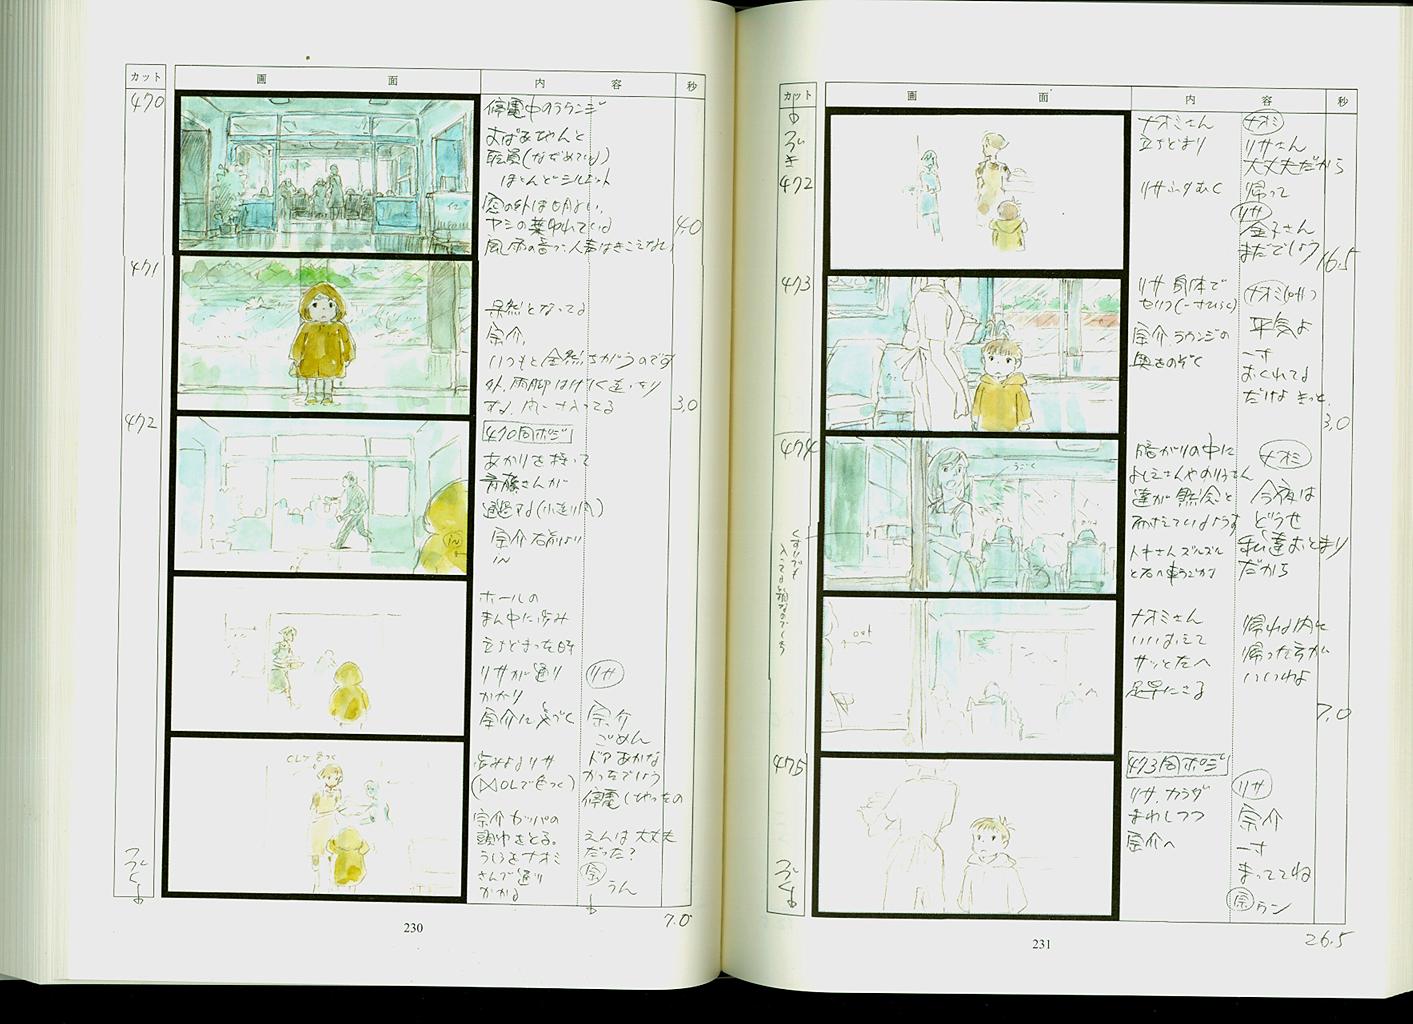 カット 画面 内容 秒
470
停電中のラウンジ
おばあちゃんと
職員(なだめている)
ほとんどシルエット
窓の外は明るい、
ヤシの葉ゆれている
風雨の音で人声はきこえない
4.0
471
呆然となってる
宗介、
いつもと全然ちがうのです
外、雨脚はげしく
3.0
472
470同ポジ
あかりを持って
斉藤さんが
通過する(小走り)
宗介右前より
in
in
ホールの
まん中に歩み
立ちどまった時
リサが通り
かかり
宗介に気づく
リサ
宗介
ごめん
歩みよるリサ
(OLで色つく)
OLで色つく
宗介カッパの
頭巾をとる。
うしろをナオミ
さんが通り
かかる
ドアあかな
かったでしょう
停電しちゃったの
えんは大丈夫
だった?
宗
うん
つづく
7.0
230
カット 画面 内容 秒
つづき
472
ナオミさん
立ちどまり
リサふりむく
ナオミ
リサさん
大丈夫だから
帰って
リサ
金子さん
まだでしょう
16.5
473
リサ身体で
宗介、ラウンジの
奥をのぞく
ナオミ
平気よ
一寸
おくれてる
だけよきっと、
3.0
474
うごく
暗がりの中に
よしえさんやのり子さん
達が黙念と
ナオミ
今夜は
どうせ
私達おとまり
だから
out
ナオミさん
いいおえて
サッと左へ
足早にさる
帰れる内に
帰った方が
いいわよ
7.0
475
473同ポジ
リサ、カラダ
まわしつつ
宗介へ
リサ
宗介
一寸
まっててね
宗 ウン
つづく
26.5
231